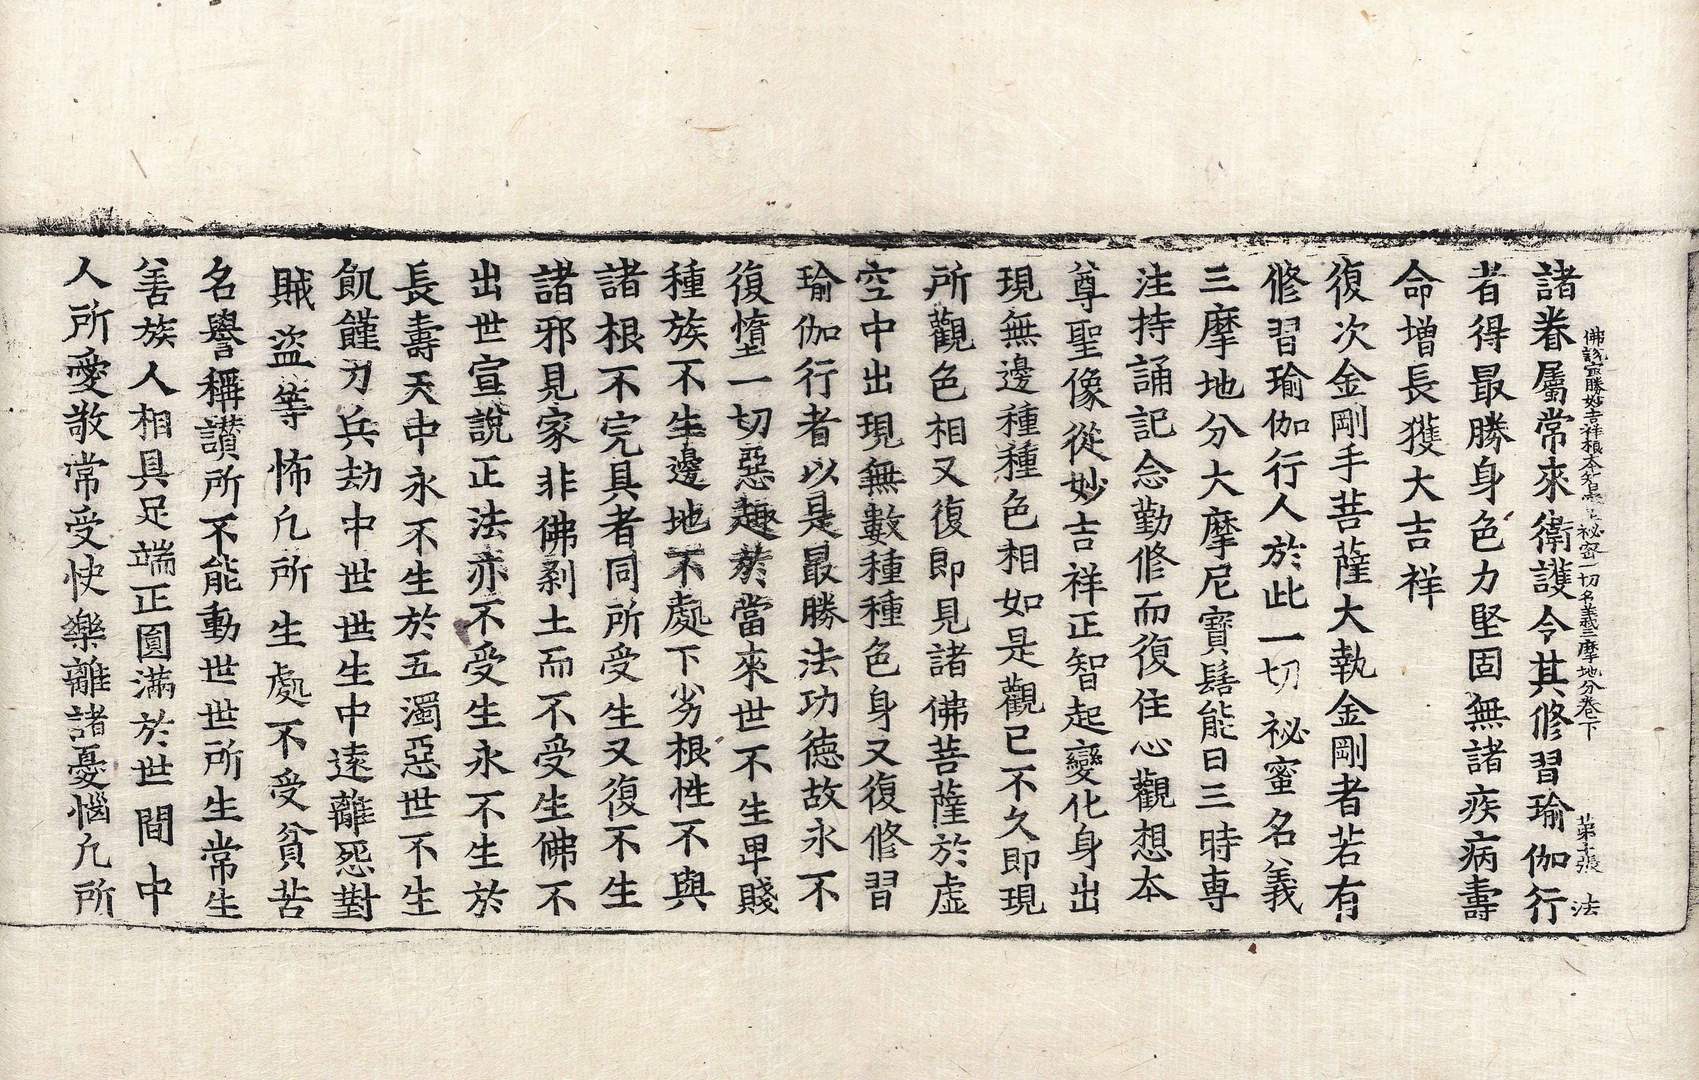 佛說最勝妙吉祥根本智最上秘密一切名義三摩地分卷下 第十張 法
諸眷屬常來衛護令其修習瑜伽行
者得最勝身色力堅固無諸疾病壽
命增長獲大吉祥
復次金剛手菩薩大執金剛者若有
修習瑜伽行人於此一切祕蜜名義
三摩地分大摩尼寶髻能日三時專
注持誦記念勤修而復住心觀想本
尊聖像從妙吉祥正智起變化身出
現無邊種種色相如是觀已不久即現
所觀色相又復即見諸佛菩薩於虛
空中出現無數種種色身又復修習
瑜伽行者以是最勝法功德故永不
復墮一切惡趣於當來世不生卑賤
種族不生邊地不處下劣根性不與
諸根不完具者同所受生又復不生
諸邪見家非佛剎土而不受生佛不
出世宣說正法亦不受生永不生於
長壽天中永不生於五濁惡世不生
飢饉刀兵劫中世世生中遠離惡對
賊盜等怖凡所生處不受貧苦
名譽稱讚所不能動世世所生常生
善族人相具足端正圓滿於世間中
人所愛敬常受快樂離諸憂惱凡所